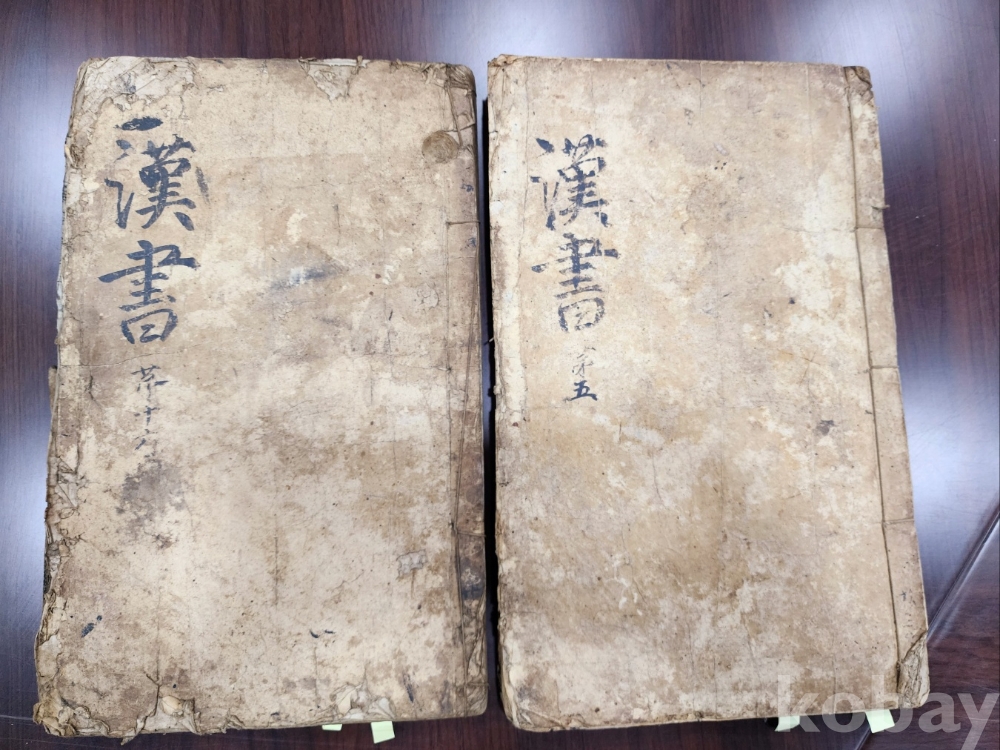 漢書
第十六
漢書
第五
kobay